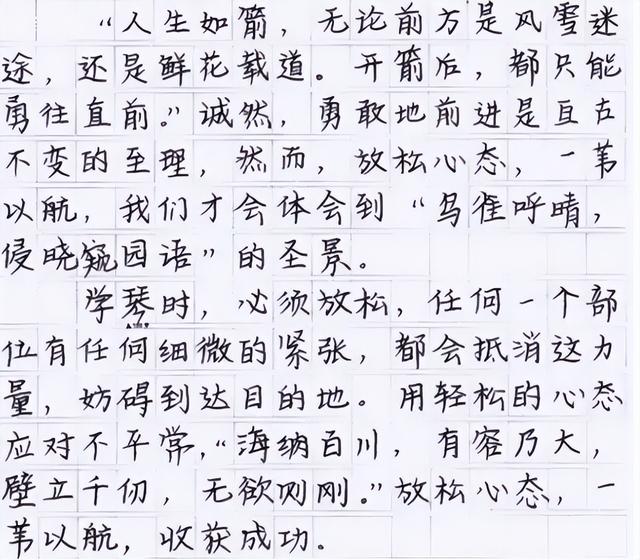 “人生如箭，无论前方是风雪迷
途，还是鲜花载道。开箭后，都只能
勇往直前。”诚然，勇敢地前进是亘古
不变的至理，然而，放松心态，一苇
以航，我们才会体会到“鸟雀呼晴，
侵晓窥园语”的圣景。
学琴时，必须放松，任何一个部
位有任何细微的紧张，都会抵消这力
量，妨碍到达目的地。用轻松的心态
应对不平常，“海纳百川，有容乃大，
壁立千仞，无欲则刚。”放松心态，一
苇以航，收获成功．